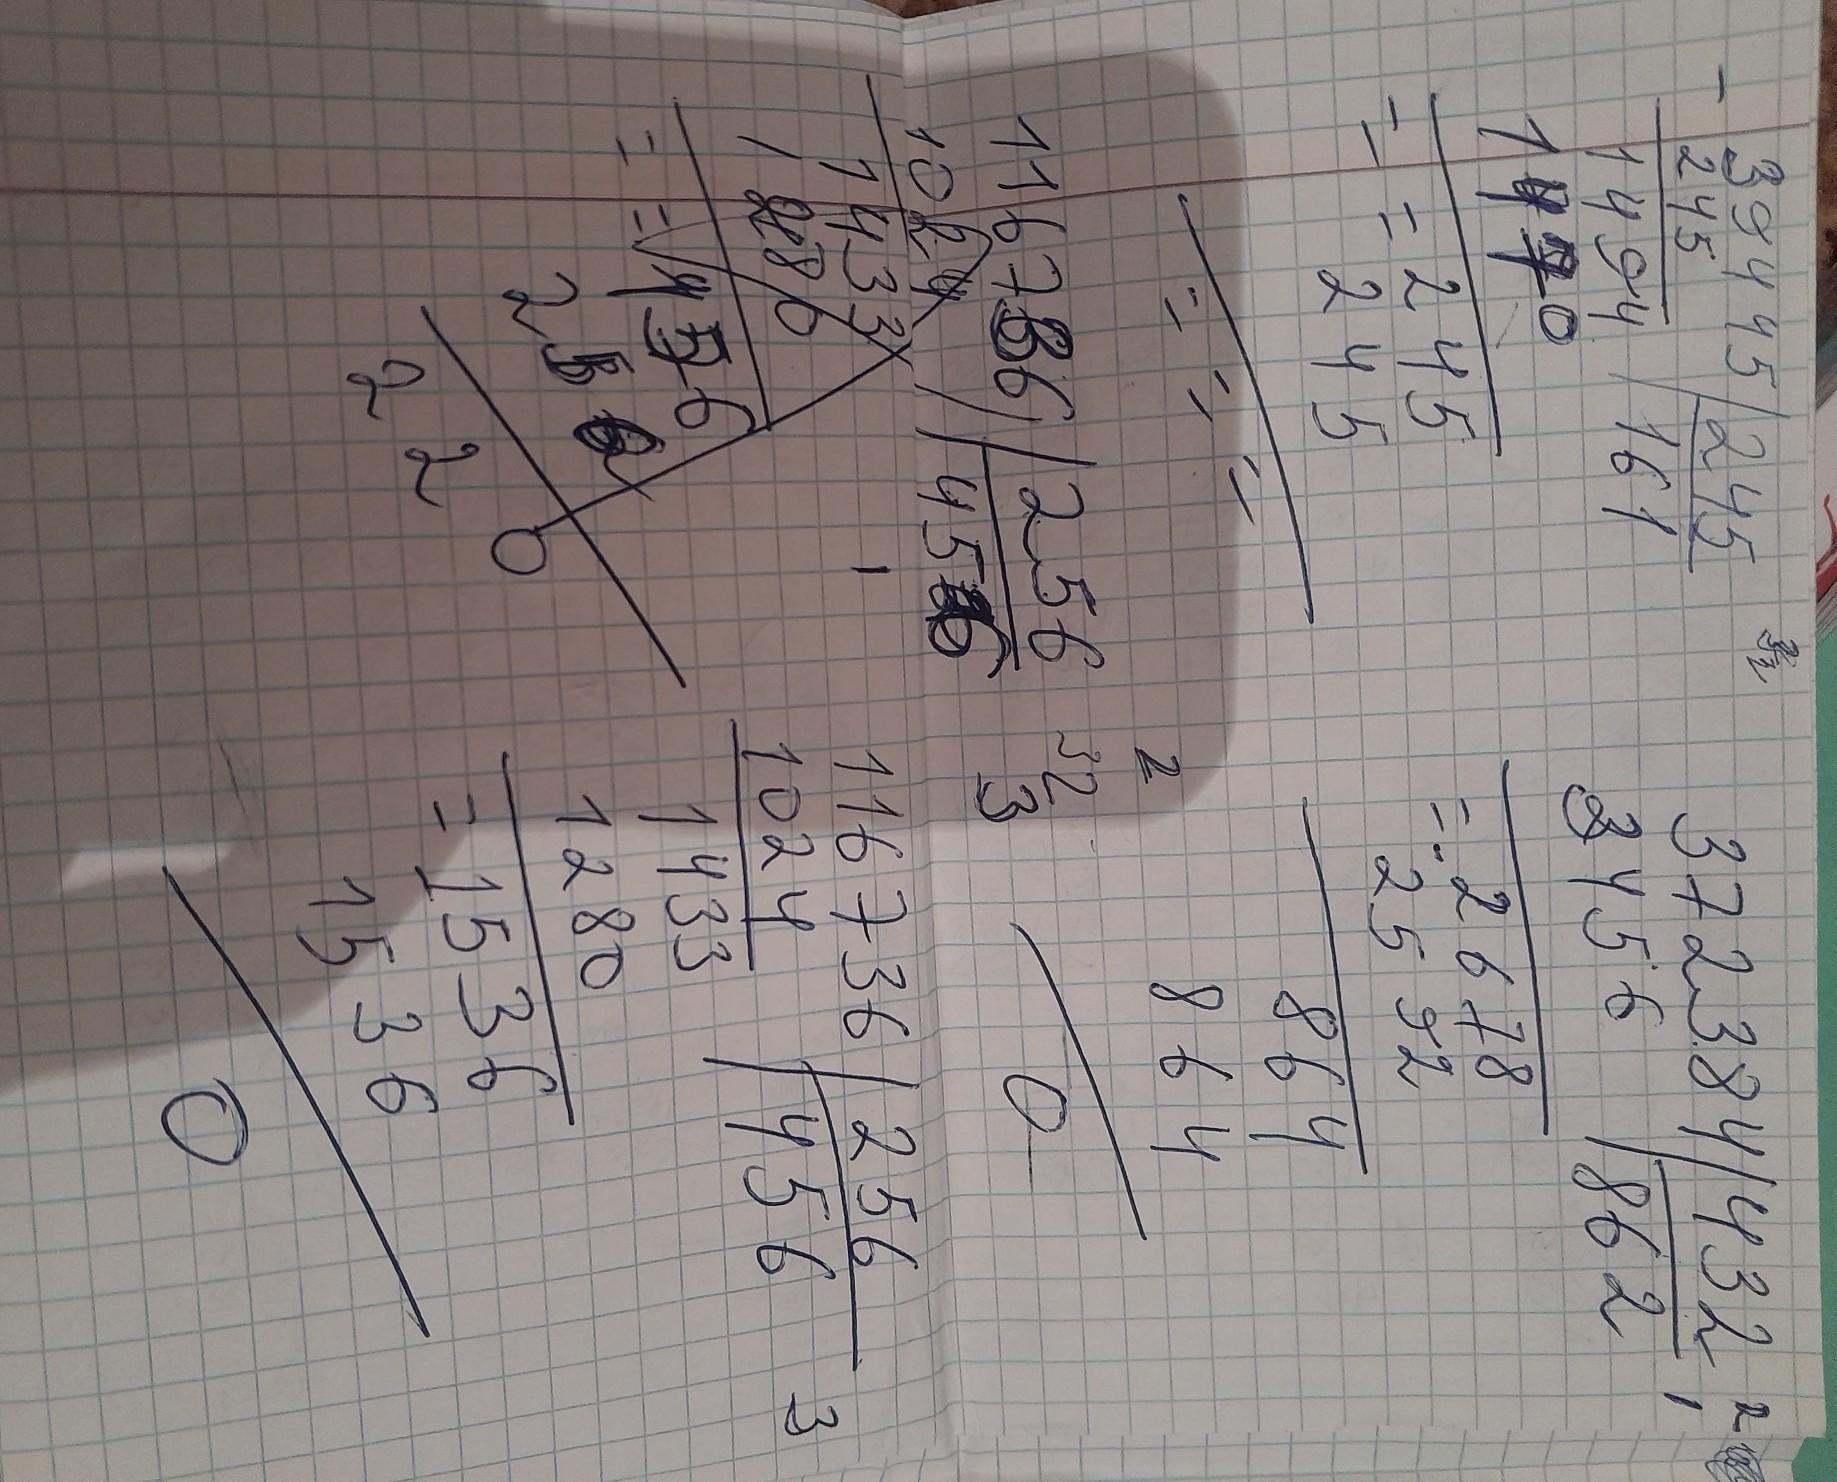 - 394445 | 245
245
1494 | 161
1470
= = 245
245
= = =
372384 | 432
3456 | 862
= 2678
2592
864
864
0
116736 | 256
1024 | 456
1433
1280
= 1536
1536
0
116736 | 256
1024 | 456
1433
1280
= = 
2 2
0
2
32
3
3
2
1